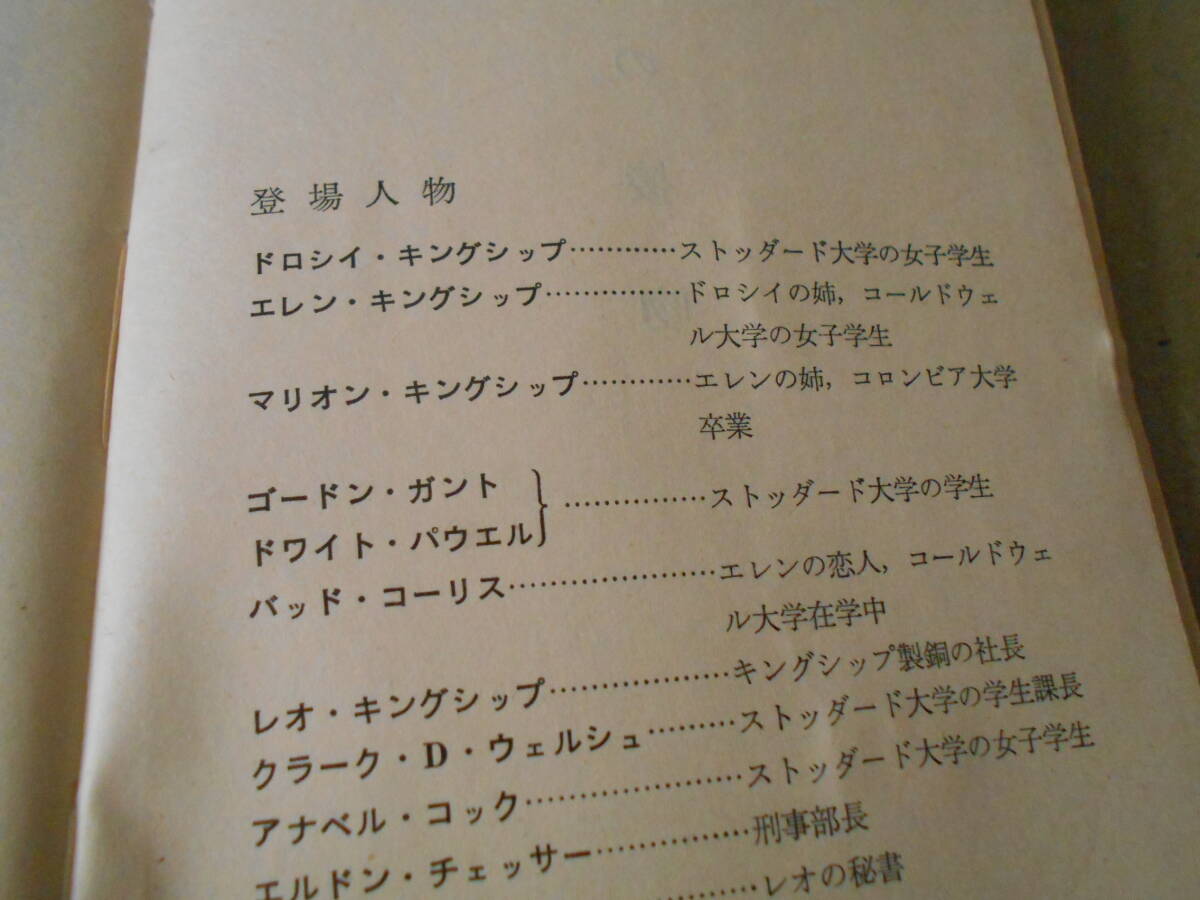 登場人物
ドロシイ・キングシップ…………ストッダード大学の女子学生
エレン・キングシップ……………ドロシイの姉，コールドウェ
ル大学の女子学生
マリオン・キングシップ…………エレンの姉，コロンビア大学
卒業
ゴードン・ガント
ドワイト・パウエル｝……………ストッダード大学の学生
バッド・コーリス…………………エレンの恋人，コールドウェ
ル大学在学中
レオ・キングシップ………………キングシップ製銅の社長
クラーク・D・ウェルシュ………ストッダード大学の学生課長
アナベル・コック…………………ストッダード大学の女子学生
エルドン・チェッサー……………刑事部長
…………レオの秘書